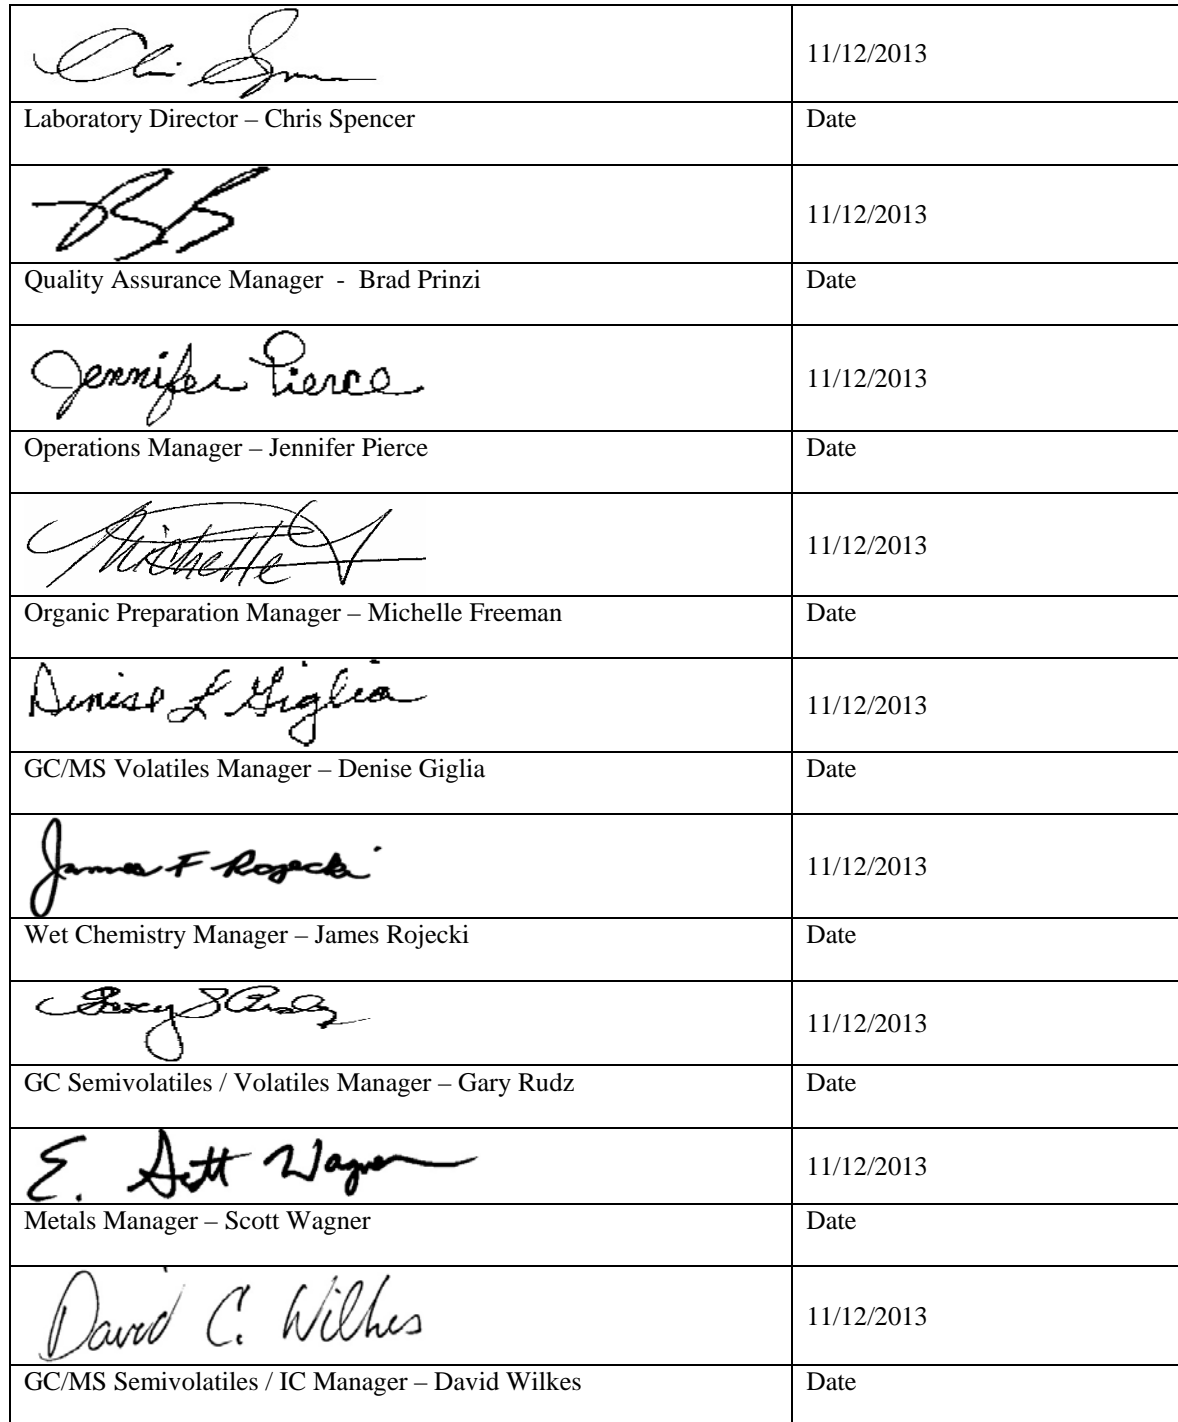 11/12/2013
Laboratory Director – Chris Spencer Date
11/12/2013
Quality Assurance Manager - Brad Prinzi Date
Jennifer Pierce 11/12/2013
Operations Manager – Jennifer Pierce Date
Michelle 11/12/2013
Organic Preparation Manager – Michelle Freeman Date
Denise L Giglia 11/12/2013
GC/MS Volatiles Manager – Denise Giglia Date
James F Rojecki 11/12/2013
Wet Chemistry Manager – James Rojecki Date
11/12/2013
GC Semivolatiles / Volatiles Manager – Gary Rudz Date
E. Scott Wagner 11/12/2013
Metals Manager – Scott Wagner Date
David C. Wilkes 11/12/2013
GC/MS Semivolatiles / IC Manager – David Wilkes Date